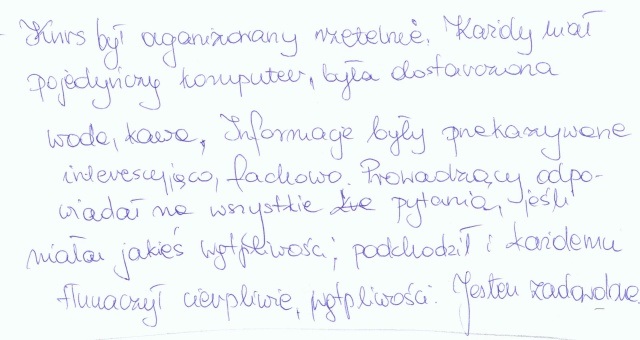 Kurs był oganizowany rzetelnie. Każdy miał
pojedyńczy komputer, była dostarczona
woda, kawa, Informacje były przekazywane
interesująco, fachowo. Prowadzący odpo-
wiadał na wszystkie pytania, jeśli
miałam jakieś wątpliwości, podchodził i każdemu
tłumaczył cierpliwie, wątpliwości. Jestem zadowolona